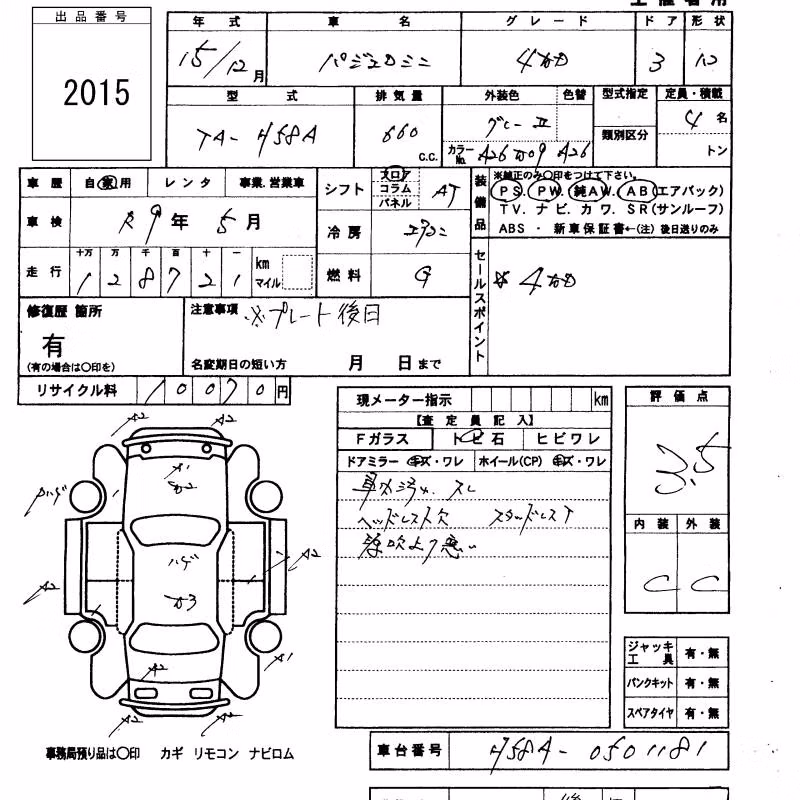 出品番号
2015
年式
15/12月
車名
パジェロミニ
グレード
4WD
ドア
3
形状
バン
型式
TA-H58A
排気量
660
C.C.
外装色
グレーII
色替
カラーNo. A26 A26
型式指定
類別区分
定員・積載
4名
トン
車歴
自家用
レンタ
事業.営業車
車検
R9年5月
走行
十万 万 千 百 十 一
128721
km
マイル
シフト
フロア
コラム
パネル
AT
冷房
エアコン
燃料
G
装備品
※純正のみ○印をつけて下さい。
PS. PW. 純AW. AB(エアバック)
TV. ナビ. カワ. SR(サンルーフ)
ABS ・ 新車保証書←(注)後日送りのみ
セールスポイント
※4WD
修復歴 箇所
有
(有の場合は○印を)
注意事項
※プレート後日
名変期日の短い方 月 日まで
リサイクル料
10070円
現メーター指示
km
【査定員記入】
Fガラス
トビ石
ヒビワレ
ドアミラー キズ・ワレ
ホイール(CP) キズ・ワレ
車内汚れ.スレ
ヘッドレスト欠 スタッドレスT
評価点
3.5
内装
外装
C
C
A2
A2
A1
A2
A2
ハゲ
A2
A1
A2
A2
A2
ジャッキ工具 有・無
パンクキット 有・無
スペアタイヤ 有・無
事務局預り品は○印 カギ リモコン ナビロム
車台番号
H58A-0501181